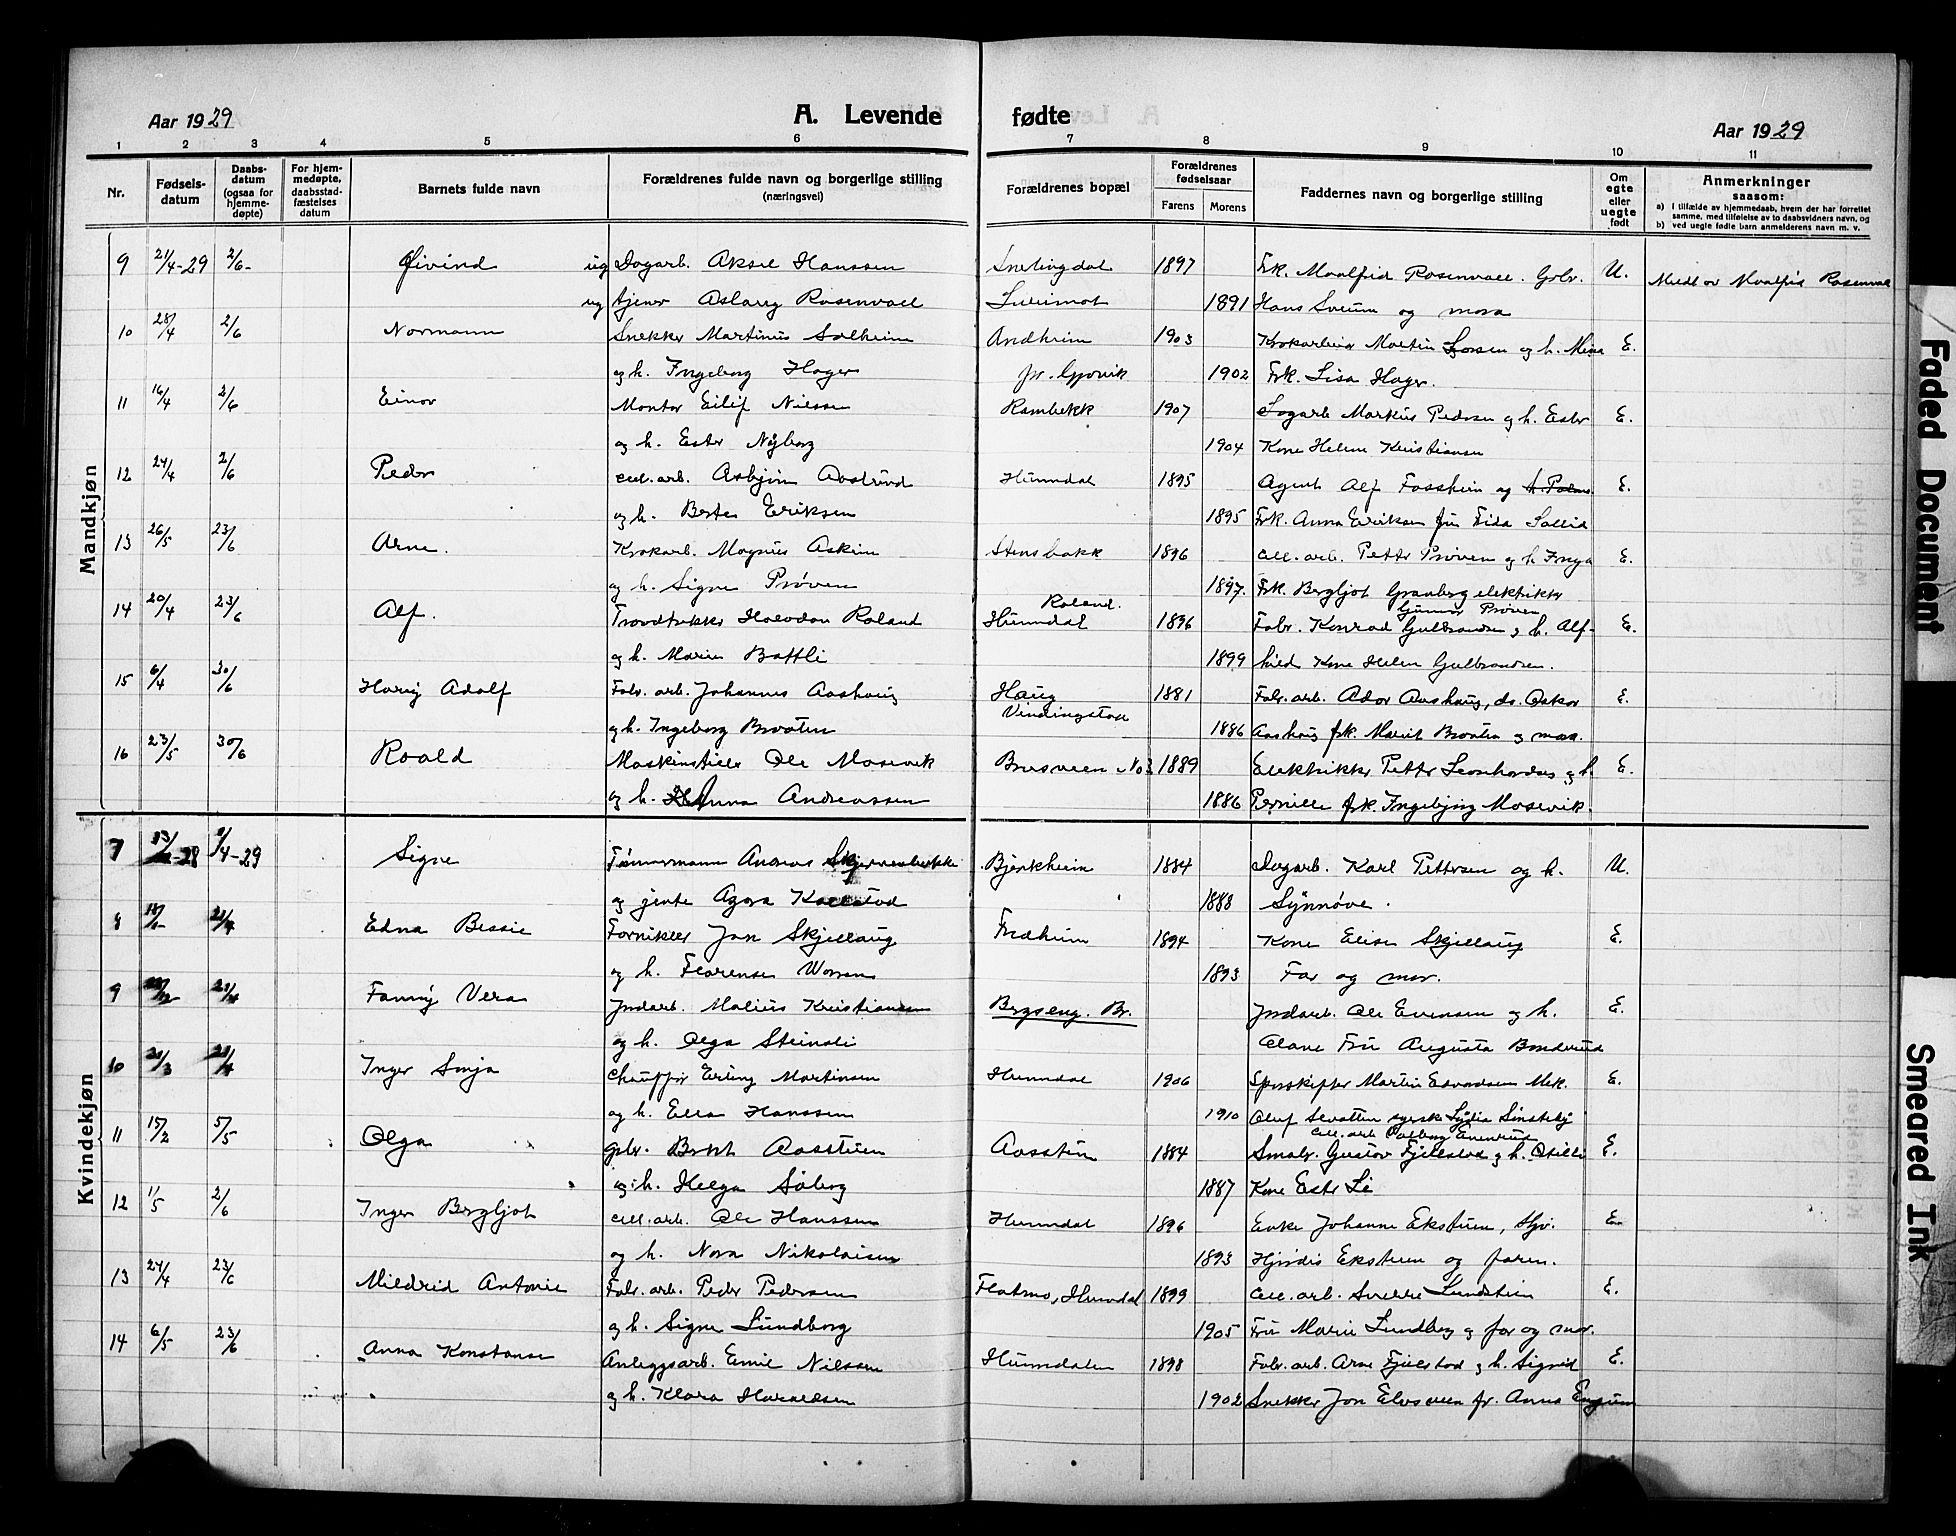 Aar 1929 A. Levende fødte Aar 1929
1 2 3 4 5 6 7 8 9 10 11
Nr. Fødsels-datum Daabs-datum (ogsaa for hjemme-døpte) For hjem-medøpte, daabsstad-fæstelses datum Barnets fulde navn Forældrenes fulde navn og borgerlige stilling (næringsvei) Forældrenes bopæl Forældrenes fødselsaar Farens Morens Faddernes navn og borgerlige stilling Om egte eller uegte født Anmerkninger saasom:
a) i tilfælde av hjemmedaab, hvem der har forrettet samme, med tilføielse av to daabsvidners navn, og
b) ved uegte fødte barn anmelderens navn m. v.
Mandkjøn
9 21/4-29 2/6- Øivind ug Dagarb. Aksel Hanssen Snertingdal 1897 Frk. Maalfrid Rosenvall. Grbr. U. Meldt av Maalfrid Rosenvall
ug tjener Aslaug Rosenvall 1891 Hans Sveum og mora
10 28/4 2/6 Normann Snekker Martinus Solheim Andheim 1903 og h. Mina E.
og h. Ingeborg Hager pr. Gjøvik 1902 Frk. Lisa Hager.
11 16/4 2/6 Einar Montør Eilif Nilssen Rambekk 1907 Markus Pedersen og h. Ester E.
og h. Ester Nyborg 1904 Kone Helene Kristiansen
12 24/4 2/6 Peder cell.arb. Asbjørn Hunndal 1895 Agent Alf Fossheim og E.
og h. Berte Eriksen 1895 Frk. Anna Eriksen
13 26/5 23/6 Arne. Krokarb. Magnus Askim Stensbakk 1896 cell. arb. Petter Prøven og h. Inga E.
og h. Signe Prøven 1897. Frk. Bergljot Granberg elektriker
Gunnar Prøven
14 20/4 23/6 Alf. Traadtrekker Halvdan Roland Roland. Hunndal 1896 Fabr. Konrad Gulbrandsen og h. Alf- E.
og h. Marie Battli 1899 hild Kone Helen Gulbrandsen.
15 6/4 30/6 Harry Adolf Fabr. arb. Johannes Aashaug Haug 1881 Fabr. arb. Ador Aashaug, ds. Oskar E.
og h. Ingeborg Braaten Vindingstad 1886 Aashaug frk. Marit Braaten og mora.
16 23/5 30/6 Roald Maskinstiller Ole Mosevik Brusveen No 3 1889 Elektriker Petter Leonhardsen og h. E.
og h. Anna Andreassen 1886 Pernille frk. Ingebjørg Mosevik.
Kvindekjøn
7 13/ -28 1/4-29 Signe Tømmermann Andreas Bjerkheim 1884 Dagarb. Karl Pettersen og h. U.
og jente Agora 1888 Synnøve.
8 Edna Bessie Forniller Jon Skjellaug Fredheim 1894 Kone Elise Skjellaug E.
og h. Florense Warren 1893 Far og mor.
9 Fanny Vera Jrdarb. Malius Kristiansen Bergseng. Br. Jrdarb. Ole Evensen og h. E.
og h. Olga Steinsli Olava Fru Augusta Bonderud
10 Inger Sonja Chauffør Erling Martinsen Hunndal 1906 Sporskifter Martin Edvardsen Mek. E.
og h. Ella Hanssen 1910 Oluf
11 15/2 5/5 Olga gbr. Aassteien Aasstein 1884 Smabr. Gustav Fjellstad og h. E.
og h. Helga Søberg 1887 Kone Ester Li
12 1/5 2/6 Inger Bergljot cell.arb. Ole Hanssen Hunndal 1896 Enke Johanne Ekstrøm, E.
og h. Nora Nikolaisen 1893 Hjørdis Ekstrøm og faren.
13 24/4 23/6 Mildrid Antonie Fabr. arb. Peder Pedersen Flatmo, Hunndal 1899 cell. arb. Sverre Lundstein E.
og h. Signe Lundberg 1905 Fru Marie Lundberg og far og mor.
14 6/5 23/6 Anna Konstanse Anleggsarb. Emil Nilssen Hunndalen 1898 Fabr. arb. Arne Fjellstad og h. Sigrid E.
og h. Klara Haraldsen 1902 Snekker Jon Elvesveen fr. Anna Engum
Faded Document
Smeared Ink